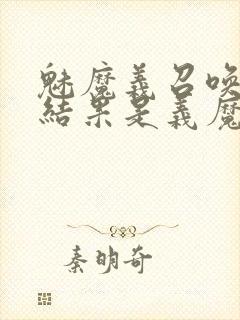 魅魔義召唤
結果是義魔
秦明奇